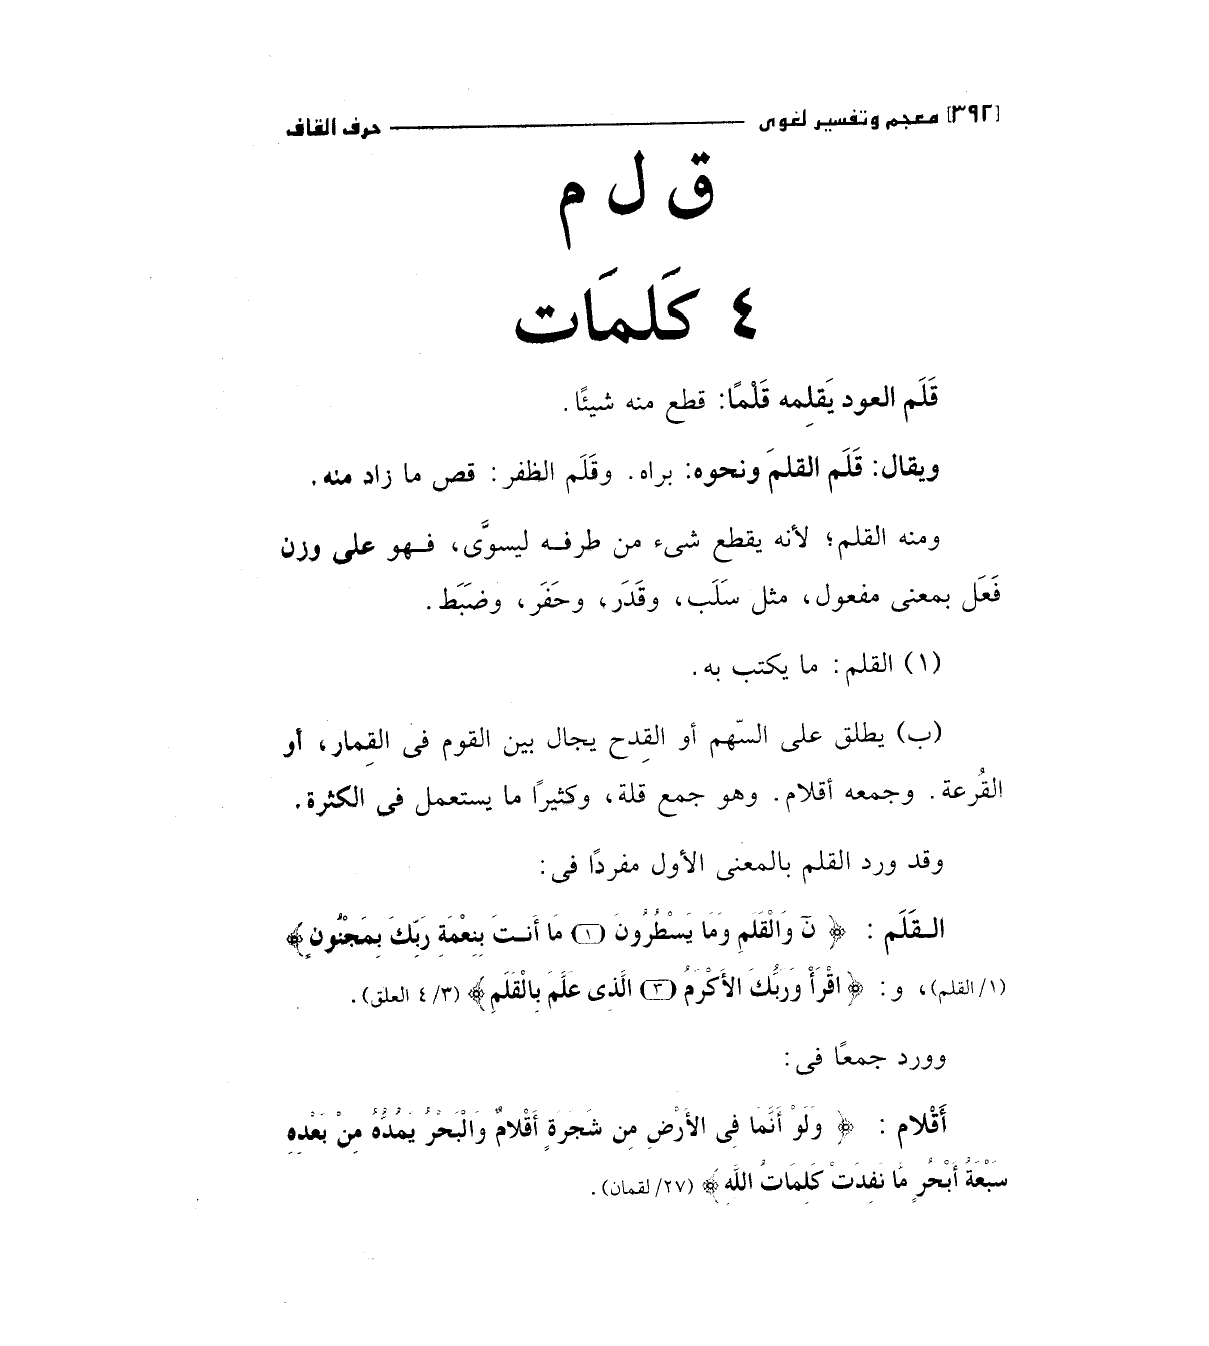 [٣٩٢] معجم وتفسير لغوى ــــــ حرف القاف
ق ل م
٤ كَلمَات
قَلَم العود يَقلِمه قَلْمًا: قطع منه شيئًا.
ويقال: قَلَم القلمَ ونحوه: براه. وقَلَم الظفر: قص ما زاد منه.
ومنه القلم؛ لأنه يقطع شىء من طرفه ليسوَّى، فهو على وزن
فَعَل بمعنى مفعول، مثل سَلَب، وقَدَر، وحَفَر، وضَبَط.
(١) القلم: ما يكتب به.
(ب) يطلق على السّهم أو القِدح يجال بين القوم فى القِمار، أو
القُرعة. وجمعه أقلام. وهو جمع قلة، وكثيرًا ما يستعمل فى الكثرة.
وقد ورد القلم بالمعنى الأول مفردًا فى:
القَلَم: ﴿ نَ وَالْقَلَمِ وَمَا يَسْطُرُونَ (١) مَا أَنتَ بِنِعْمَةِ رَبِّكَ بِمَجْنُونٍ ﴾
(١/ القلم)، و: ﴿ اقْرَأْ وَرَبُّكَ الأَكْرَمُ (٣) الَّذِى عَلَّمَ بِالْقَلَمِ ﴾ (٣/ ٤ العلق).
وورد جمعًا فى:
أَقْلام: ﴿ وَلَوْ أَنَّمَا فِى الأَرْضِ مِن شَجَرَةٍ أَقْلامٌ وَالْبَحْرُ يَمُدُّهُ مِنْ بَعْدِهِ
سَبْعَةُ أَبْحُرٍ مَّا نَفِدَتْ كَلِمَاتُ اللَّهِ ﴾ (٢٧/ لقمان).